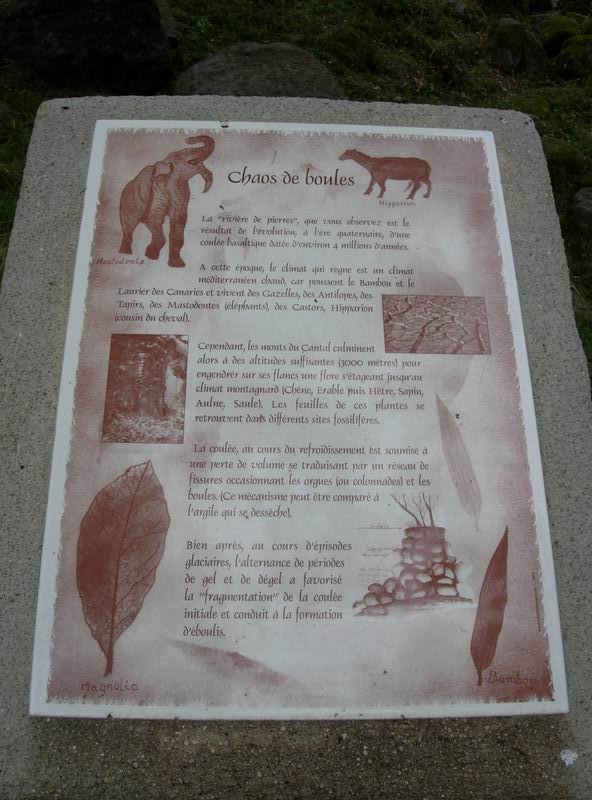 Chaos de boules
Hipparion
Mastodonte
La "rivière de pierres", que vous observez est le
résultat de l'évolution, à l'ère quaternaire, d'une
coulée basaltique datée d'environ 4 millions d'années.
A cette époque, le climat qui règne est un climat
méditerranéen chaud, car poussent le Bambou et le
Laurier des Canaries et vivent des Gazelles, des Antilopes, des
Tapirs, des Mastodontes (éléphants), des Castors, Hipparion
(cousin du cheval).
Cependant, les monts du Cantal culminent
alors à des altitudes suffisantes (3000 mètres) pour
engendrer sur ses flancs une flore s'étageant jusqu'au
climat montagnard (Chêne, Erable puis Hêtre, Sapin,
Aulne, Saule). Les feuilles de ces plantes se
retrouvent dans différents sites fossilifères.
La coulée, au cours du refroidissement est soumise à
une perte de volume se traduisant par un réseau de
fissures occasionnant les orgues (ou colonnades) et les
boules. (Ce mécanisme peut être comparé à
l'argile qui se dessèche).
Bien après, au cours d'épisodes
glaciaires, l'alternance de périodes
de gel et de dégel a favorisé
la "fragmentation" de la coulée
initiale et conduit à la formation
d'éboulis.
Magnolia
Bambou